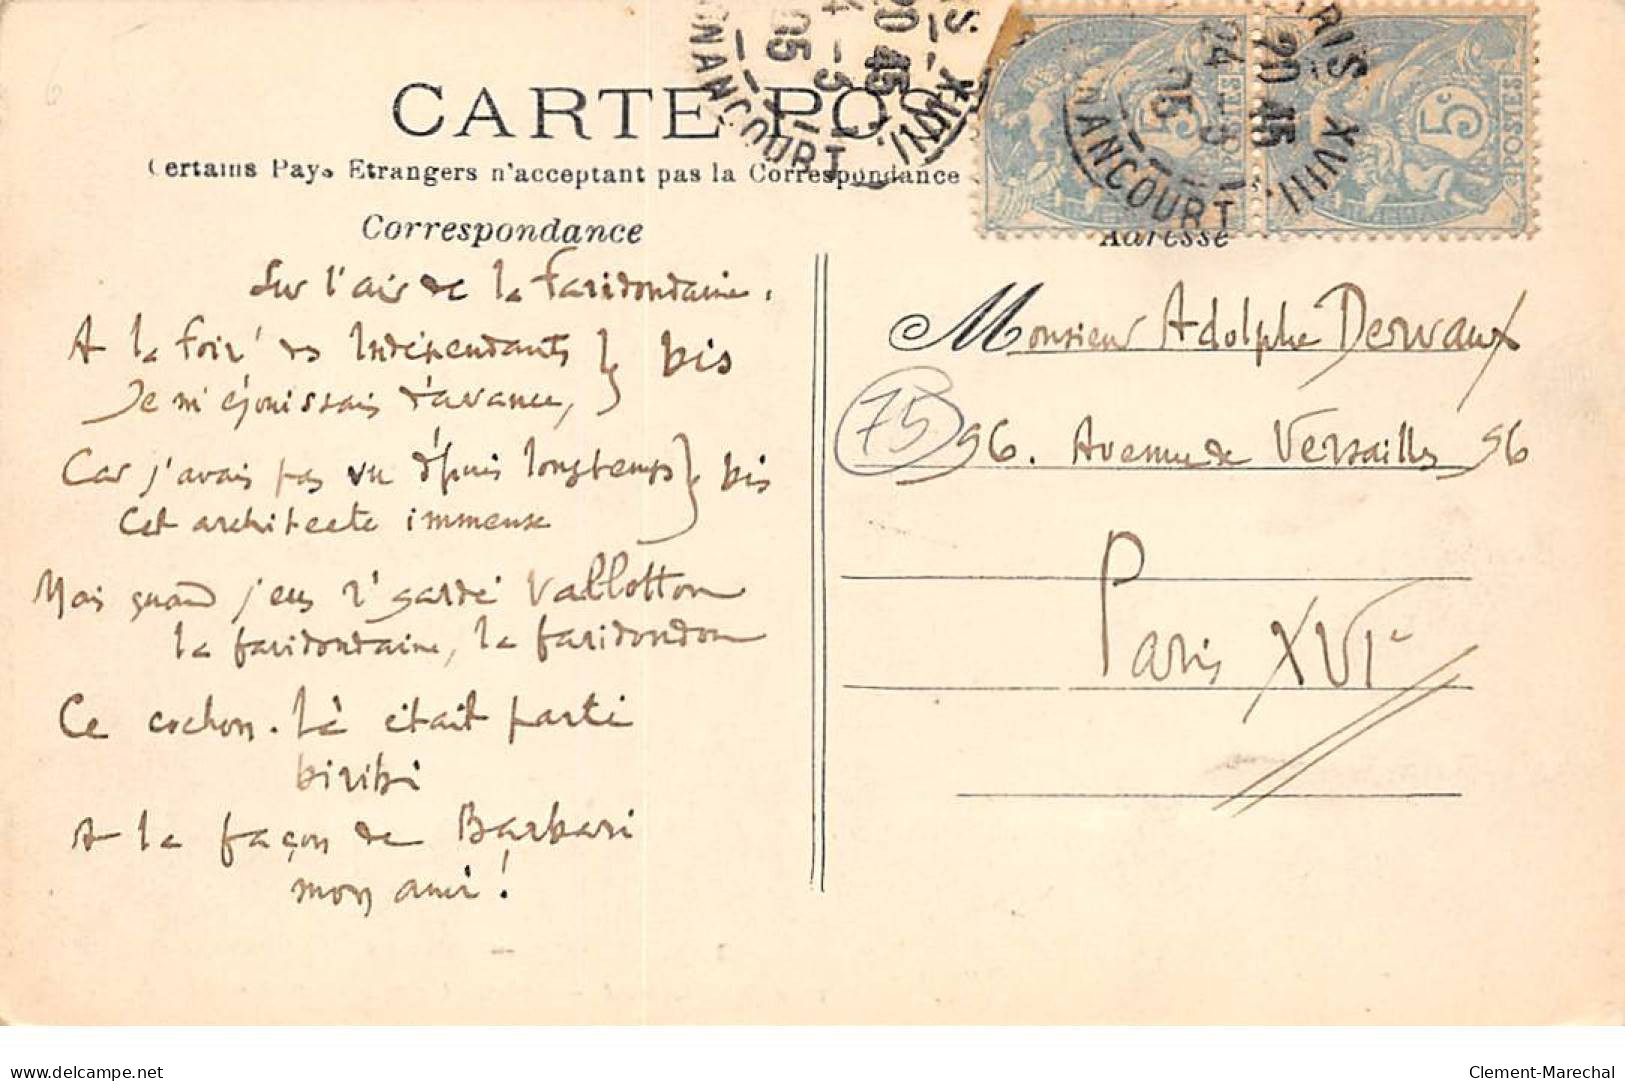 CARTE POS
Certains Pays Etrangers n'acceptant pas la Correspondance
Correspondance
Adresse
Sur l'air de la faridondaine.
A la foir' des Indépendants } bis
Je m'éjouissais d'avance,
Car j'avais pas vu d'puis longtemps } bis
Cet architecte immense
Mais quand j'eus r'gardé Vallotton
la faridondaine, la faridondon
Ce cochon-là était parti
biribi
A la façon de Barbari
mon ami !
Monsieur Adolphe Dervaux
75
96. Avenue de Versailles 96
Paris XVIe
5c
POSTES
5c
POSTES
PARIS XVIII.
20 45
24 - 3
05
PARIS XVIII.
20 45
24 3
05
Clement-Marechal
delcampe.net